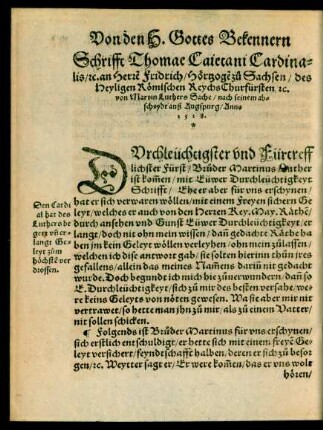 Von den H. Gottes Bekennern
Schrifft Thomae Caietani Cardina-
lis/ꝛc. an Herrē Fridrich/Hörtzogē zů Sachsen/des
Heyligen Römischen Reychs Churfürsten ꝛc.
von Martin Luthers Sache/nach seinem ab-
scheydt auß Augspurg/Anno
1518.
*
DVrchleüchtigster vnd Fürtreff
lichster Fürst/Brůder Martinus Luther
ist kom̄en/mit Eüwer Durchleüchtigkeyt
Schrifft/Ehe er aber für vns erschynen/
hat er sich verwaren wöllen/mit einem Freyen sichern Ge
leyt/welches er auch von den Herren Key. May. Räth/
durch ansehen vnd Gunst Eüwer Durchleüchtigkeyt/er-
langt/doch nit ohn mein wissen/dañ gedachte Räthe ha
ben jm kein Geleyt wöllen verleyhen/ohn mein zůlassen/
welchen ich dise antwort gab/sie solten hierinn thůn jres
gefallens/allein das meines Namens darin nit gedacht
wurde. Doch begundt ich mich hie zůuerwundern/dañ so
E. Durchleüchtigkeyt/sich zů mir des besten versahe/we-
re keins Geleyts von nöten gewesen. Wa sie aber mir nit
vertrawet/so hette man jhn zů mir/als zů einem Vatter/
nit sollen schicken.
¶ Folgends ist Brůder Martinus für vns erschynen/
sich erstlich entschuldiget/er hette sich mit einem freyē Ge
leyt versichert/feyndtschafft halben/deren er sich zů besor
gen/ꝛc. Weytter sagt er/Er were kom̄en/das er vns wolt
hören/
Den Cardi
al hat des
Luthers be
gert vñ er-
langt Ge-
leyt zům
höchstē ver
drossen.